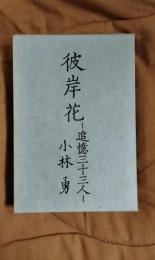 彼岸花
—追憶三十三人—
小林 勇